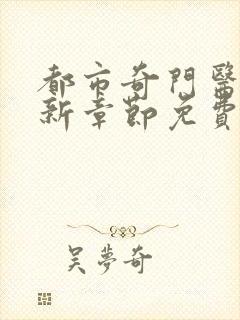 都市奇門醫
新章節免費
吴夢奇